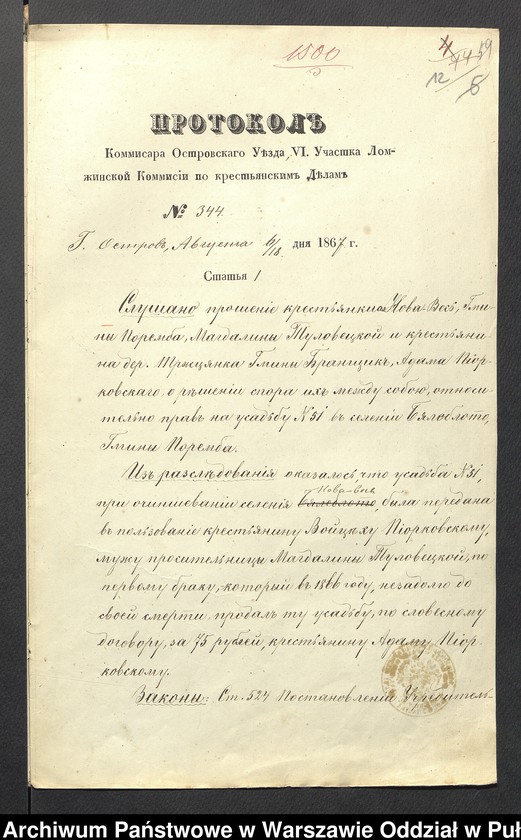 1500
4
19
12
6
ПРОТОКОЛЪ
Коммисара Островскаго Уѣзда, VI. Участка Лом-
жинской Коммисіи по крестьянскимъ Дѣламъ
№ 344.
Г. Островъ, Августа 6/18 дня 1867 г.
Статья 1
Слушано прошеніе крестьянки Нова Весь, Гми-
ны Поремба, Магдалины Туловецкой и крестьяни
на дер. Тржцянка Гмины Бранщикъ, Адама Піор-
ковскаго, о рѣшеніи спора ихъ между собою, относи-
тельно правъ на усадьбу N 51 въ селеніи Бялоблото,
Гмины Поремба.
Изъ разслѣдованія оказалось, что усадьба N 51,
Нова-весь
при очиншеваніи селенія Бялоблото, была передана
въ пользованіе крестьянину Войцеху Піорковскому,
мужу просительницы Магдалины Туловецкой, по
первому браку, который въ 1866 году, незадолго до
своей смерти, продалъ ту усадьбу, по словесному
договору, за 75 рублей, крестьянину Адаму Піор-
ковскому.
Законы: Ст. 524 Постановленій Учредитель-
Archiwum Państwowe w Warszawie Oddział w Puł